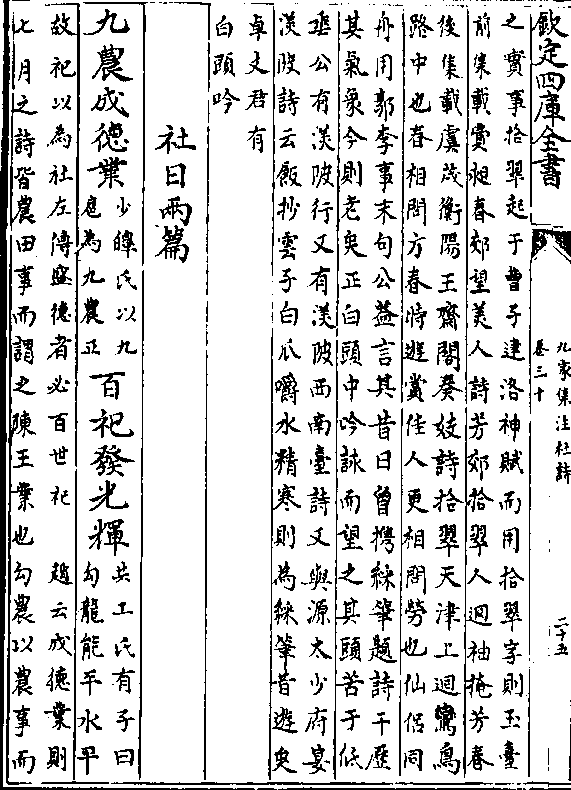 欽定四庫全書
九家集注杜詩
卷三十
二十五
之實事拾翠起于曹子建洛神賦而用拾翠字則玉臺
前集載費昶春郊望美人詩芳郊拾翠人迴袖掩芳春
後集載虞茂衡陽王齋閣奏妓詩拾翠天津上迴鸞鳥
路中也春相問方春時遊賞佳人更相問勞也仙侶同
舟用郭李事末句公蓋言其昔日曾携綵筆題詩干歷
其氣象今則老矣正白頭中吟詠而望之其頭苦于低
垂公有渼陂行又有渼陂西南臺詩又與源太少府宴
渼陂詩云飯抄雲子白瓜嚼水精寒則為綵筆昔遊矣
卓文君有
白頭吟
社日兩篇
九農成德業少皥氏以九
扈為九農正百祀發光輝共工氏有子曰
勾龍能平水平
故祀以為社左傳盛德者必百世祀 趙云成德業則
七月之詩皆農田事而謂之陳王業也勾農以農事而